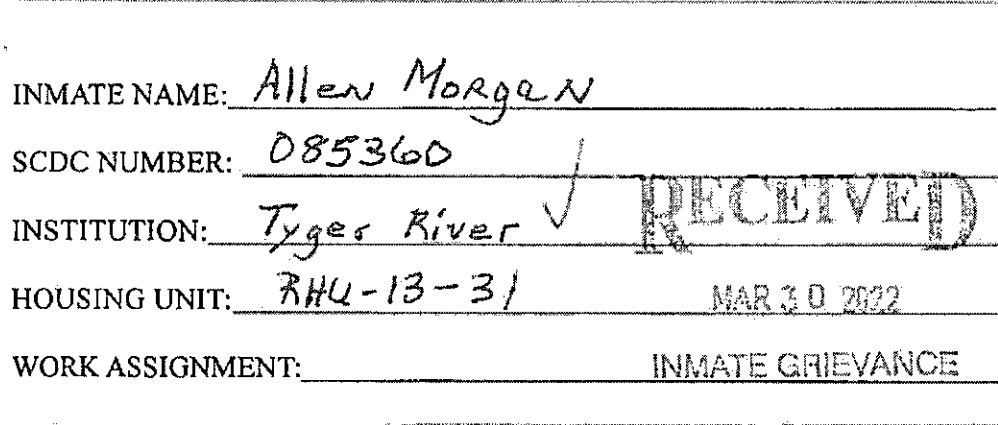 INMATE NAME: Allen Morgan
SCDC NUMBER: 085360
INSTITUTION: Tyger River ✓ RECEIVED
HOUSING UNIT: RHU-13-31 MAR 30 2022
WORK ASSIGNMENT: INMATE GRIEVANCE